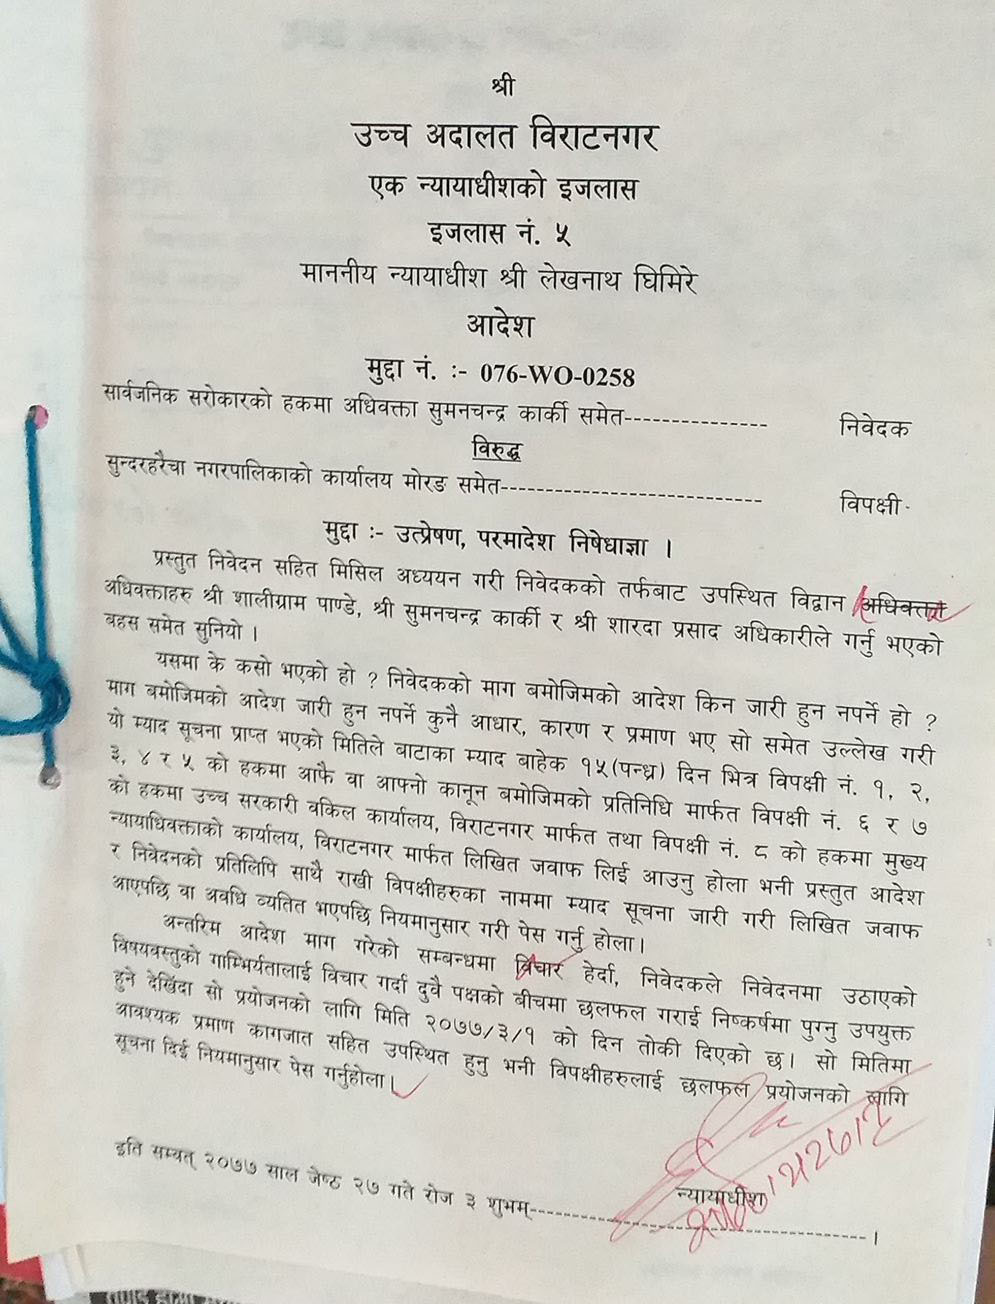 श्री
उच्च अदालत विराटनगर
एक न्यायाधीशको इजलास
इजलास नं. ५
माननीय न्यायाधीश श्री लेखनाथ घिमिरे
आदेश
मुद्दा नं. :- 076-WO-0258
सार्वजनिक सरोकारको हकमा अधिवक्ता सुमनचन्द्र कार्की समेत--------------- निवेदक
विरुद्ध
सुन्दरहरैचा नगरपालिकाको कार्यालय मोरङ समेत---------------------------- विपक्षी
मुद्दा :- उत्प्रेषण, परमादेश निषेधाज्ञा ।
प्रस्तुत निवेदन सहित मिसिल अध्ययन गरी निवेदकको तर्फबाट उपस्थित विद्वान अधिवक्ता
अधिवक्ताहरु श्री शालीग्राम पाण्डे, श्री सुमनचन्द्र कार्की र श्री शारदा प्रसाद अधिकारीले गर्नु भएको
बहस समेत सुनियो ।
यसमा के कसो भएको हो ? निवेदकको माग बमोजिमको आदेश किन जारी हुन नपर्ने हो ?
माग बमोजिमको आदेश जारी हुन नपर्ने कुनै आधार, कारण र प्रमाण भए सो समेत उल्लेख गरी
यो म्याद सूचना प्राप्त भएको मितिले बाटाका म्याद बाहेक १५(पन्ध्र) दिन भित्र विपक्षी नं. १, २,
३, ४ र ५ को हकमा आफै वा आफ्नो कानून बमोजिमको प्रतिनिधि मार्फत विपक्षी नं. ६ र ७
को हकमा उच्च सरकारी वकिल कार्यालय, विराटनगर मार्फत तथा विपक्षी नं. ८ को हकमा मुख्य
न्यायाधिवक्ताको कार्यालय, विराटनगर मार्फत लिखित जवाफ लिई आउनु होला भनी प्रस्तुत आदेश
र निवेदनको प्रतिलिपि साथै राखी विपक्षीहरुका नाममा म्याद सूचना जारी गरी लिखित जवाफ
आएपछि वा अवधि व्यतित भएपछि नियमानुसार गरी पेस गर्नु होला।
अन्तरिम आदेश माग गरेको सम्बन्धमा विचार हेर्दा, निवेदकले निवेदनमा उठाएको
विषयवस्तुको गाम्भिर्यतालाई विचार गर्दा दुवै पक्षको बीचमा छलफल गराई निष्कर्षमा पुग्नु उपयुक्त
हुने देखिंदा सो प्रयोजनको लागि मिति २०७७/३/१ को दिन तोकी दिएको छ। सो मितिमा
आवश्यक प्रमाण कागजात सहित उपस्थित हुनु भनी विपक्षीहरुलाई छलफल प्रयोजनको लागि
सूचना दिई नियमानुसार पेस गर्नुहोला।
न्यायाधीश
इति सम्वत् २०७७ साल जेष्ठ २७ गते रोज ३ शुभम्------------------------------------।